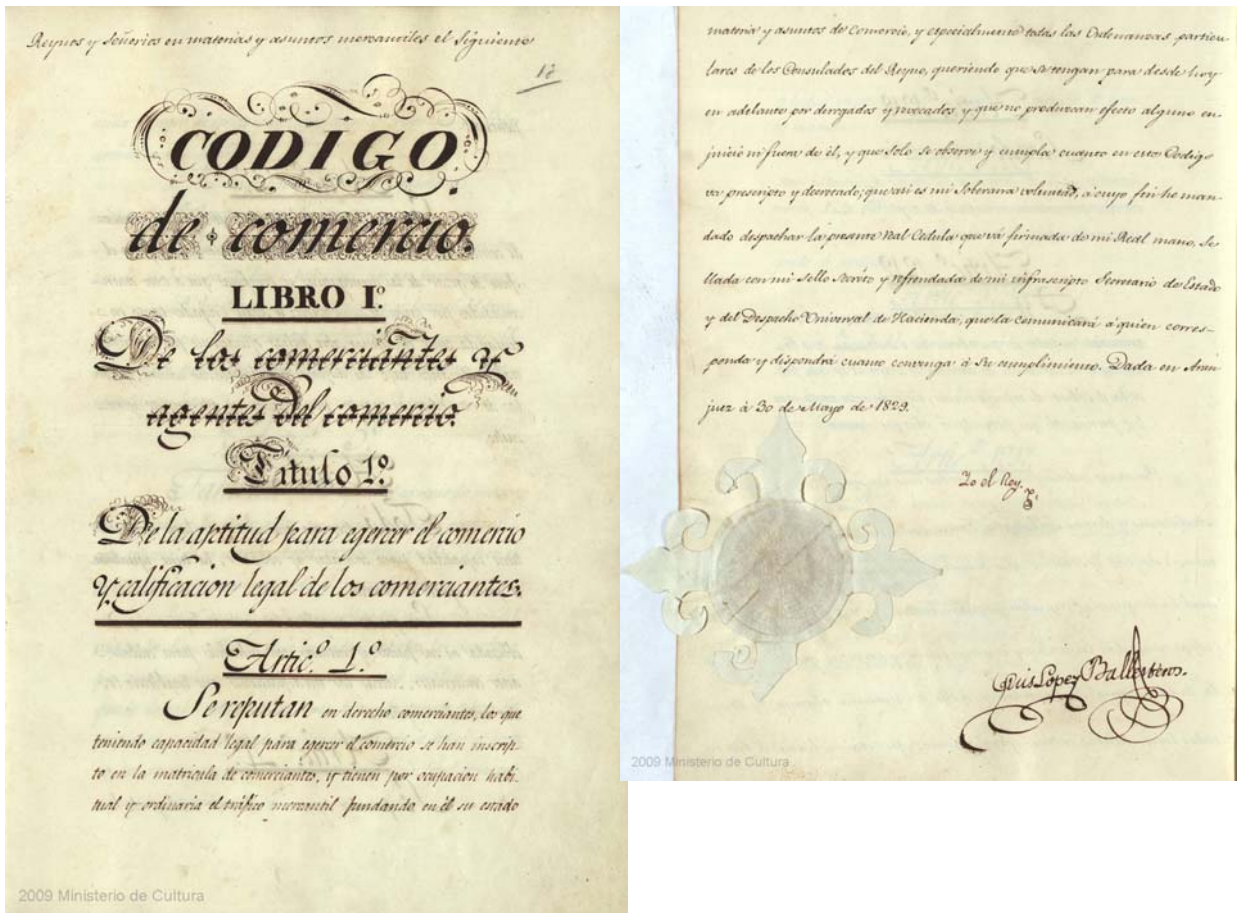 Reynos y Señorios en materias y asuntos mercantiles el siguiente
CODIGO
de comercio.
LIBRO I.º
De los comerciantes y
agentes del comercio.
Titulo 1.º
De la aptitud para egercer el comercio
y calificacion legal de los comerciantes.
Artic.º 1.º
Se reputan en derecho comerciantes, los que
teniendo capacidad legal para egercer el comercio se han inscrip-
to en la matricula de comerciantes, y tienen por ocupacion habi-
tual y ordinaria el tráfico mercantil fundando en él su estado
2009 Ministerio de Cultura
materia y asuntos de Comercio, y especialmente todas las Ordenanzas particu-
lares de los Consulados del Reyno, queriendo que se tengan para desde hoy
en adelante por derogados y revocados, y que no produzcan efecto alguno en
juicio ni fuera de él, y que solo se observe y cumpla cuanto en este Codigo
va prescripto y decretado; que asi es mi Soberana voluntad, a cuyo fin he man-
dado despachar la presente Real Cedula que vá firmada de mi Real mano, Se-
llada con mi sello Secreto y refrendada de mi infrascripto Secretario de Estado
y del Despacho Universal de Hacienda, que la comunicará á quien corres-
ponda y dispondrá cuanto convenga á su cumplimiento. Dada en Aran
juez á 30 de Mayo de 1829.
Yo el Rey.
Luis López Ballesteros.
2009 Ministerio de Cultura